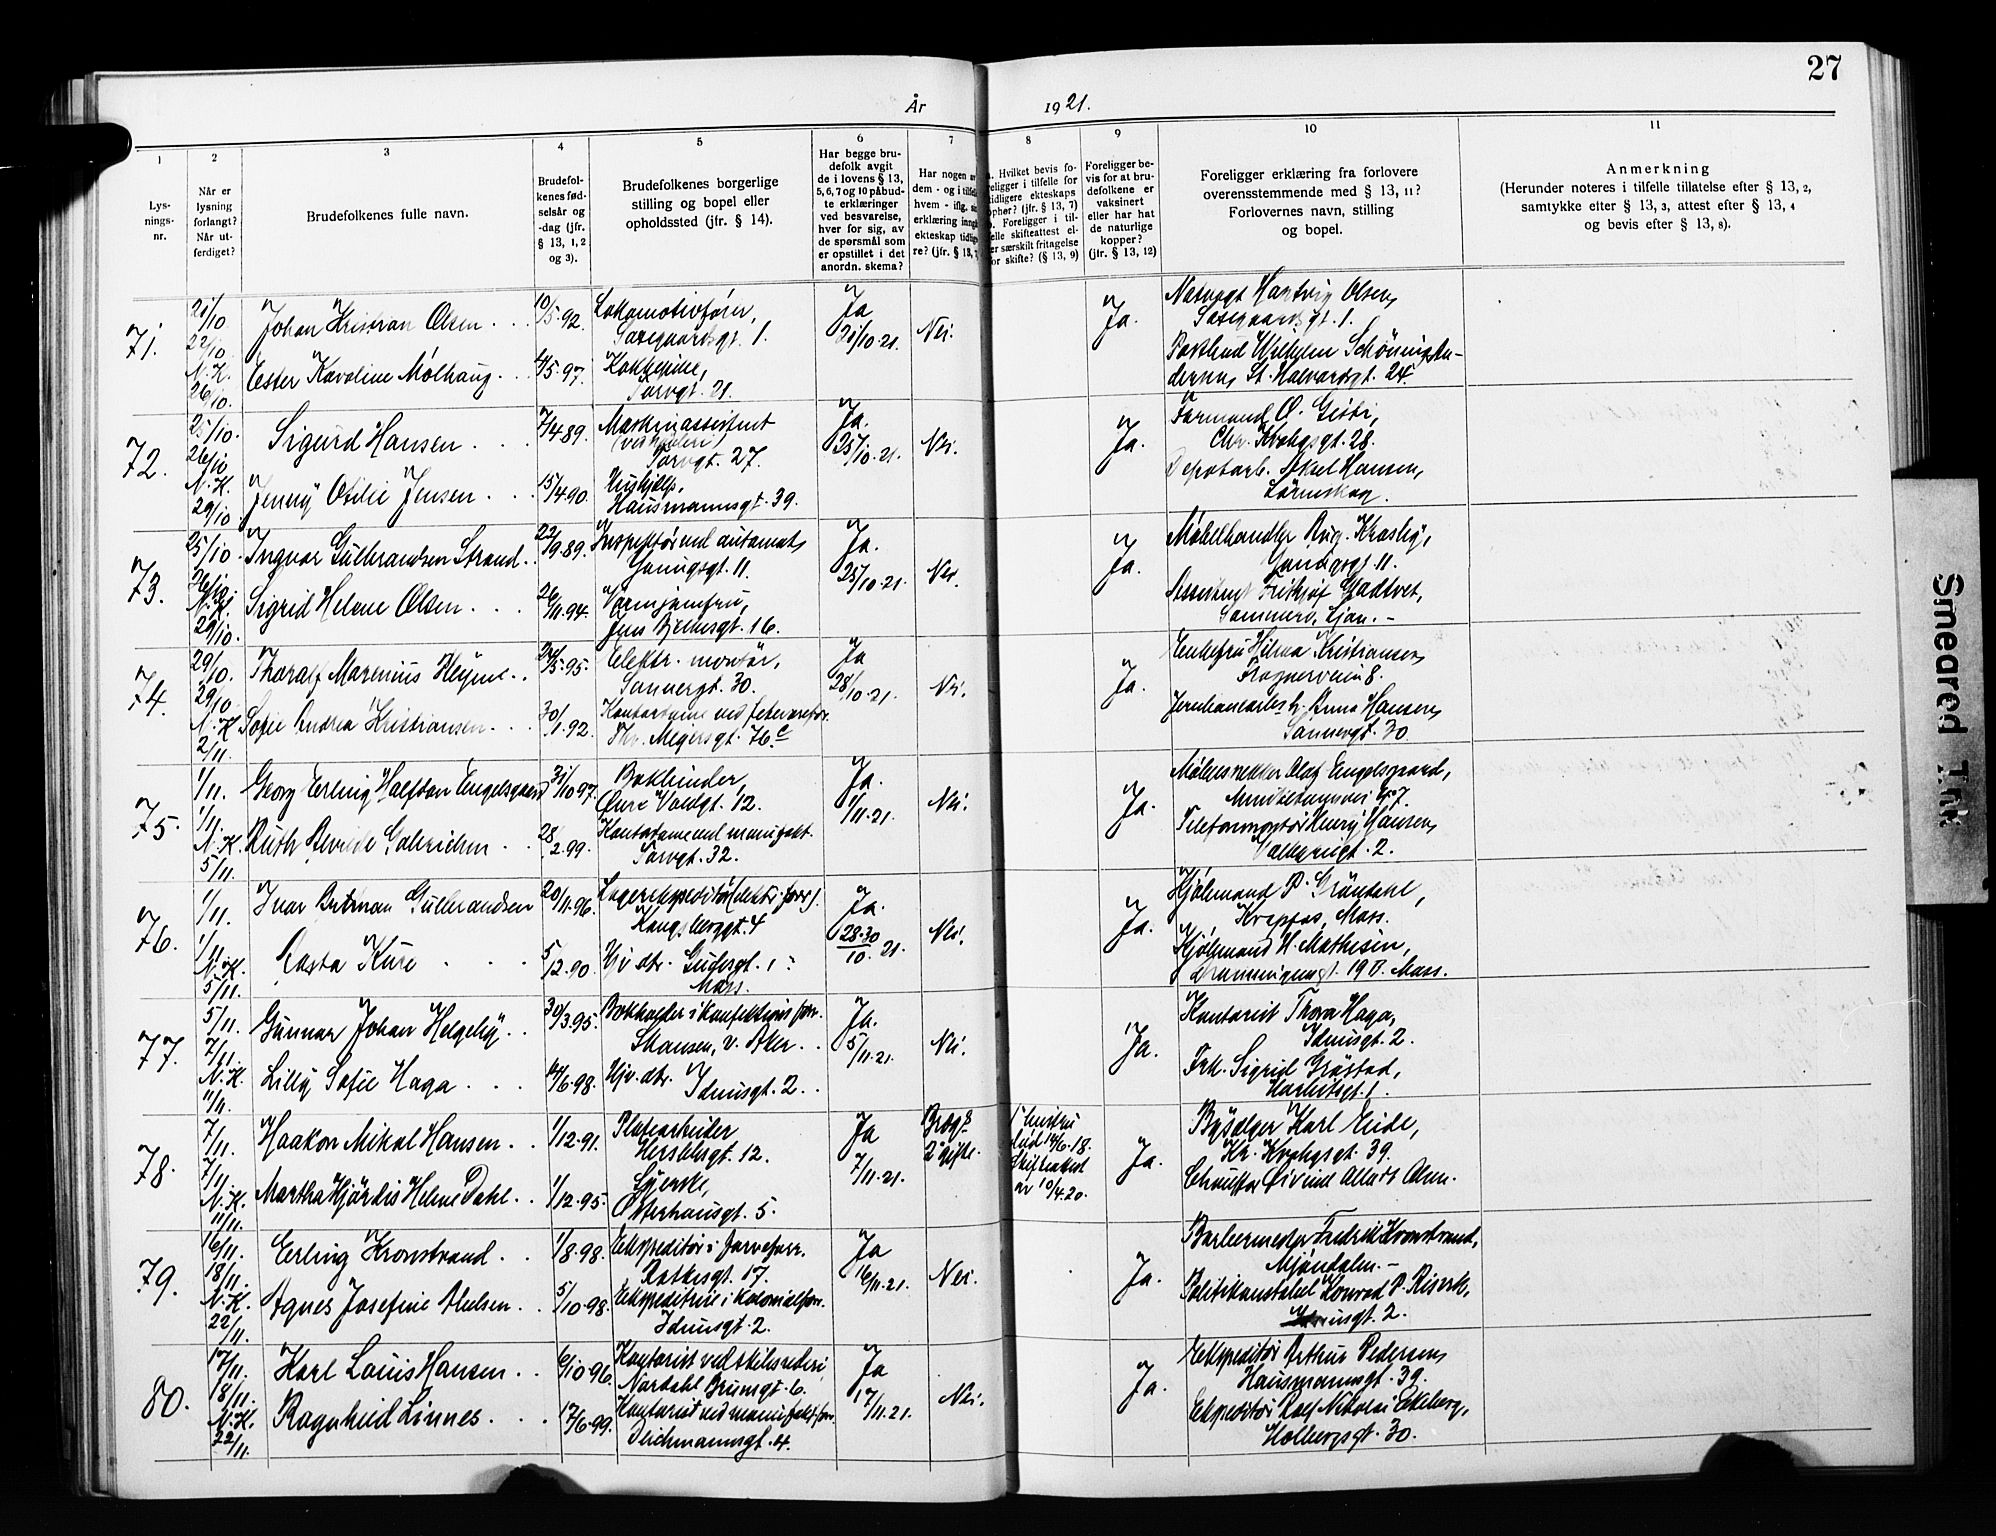 27
År 1921.
1
2
3
4
5
6
7
8
9
10
11
Lysnings-nr.
Når er lysning forlangt? Når utferdiget?
Brudefolkenes fulle navn.
Brudefolkenes fødselsår og -dag (jfr. § 13, 1, 2 og 3).
Brudefolkenes borgerlige stilling og bopel eller opholdssted (jfr. § 14).
Har begge brudefolk avgit de i lovens § 13, 5, 6, 7 og 10 påbudte erklæringer ved besvarelse, hver for sig, av de spørsmål som er opstillet i det anordn. skema?
Har nogen av dem - og i tilfelle hvem - iflg. sin erklæring inngått ekteskap tidligere? (jfr. § 13, 7
a. Hvilket bevis foreligger i tilfelle for tidligere ekteskaps ophør? (jfr. § 13, 7) b. Foreligger i tilfelle skifteattest eller særskilt fritagelse for skifte? (§ 13, 9)
Foreligger bevis for at brudefolkene er vaksinert eller har hat de naturlige kopper? (jfr. § 13, 12)
Foreligger erklæring fra forlovere overensstemmende med § 13, 11? Forlovernes navn, stilling og bopel.
Anmerkning (Herunder noteres i tilfelle tillatelse efter § 13, 2, samtykke efter § 13, 3, attest efter § 13, 4 og bevis efter § 13, 8).
71.
21/10
22/10.
N.K.
26/10.
Johan Kristian Olsen
10/5.92.
Lokomotivfører,
Saxegaardsgt. 1.
Ester Karoline Mølhaug
4/5.97.
Torvgt. 21.
Ja
21/10.21.
Nei.
Ja.
Hartvig Olsen,
Saxegaardsgt. 1.
Wilhelm
St. Halvardsgt. 24.
72.
25/10.
26/10
N.K.
29/10.
Sigurd Hansen
7/4.89.
Maskinassistent
Torvgt. 27.
Jenny Otilie Jensen
15/4.90.
Hushjelp,
Hausmannsgt. 39.
Ja.
25/10.21.
Nei.
Ja.
Chr. Krohgsgt. 28.
Axel Hansen,
Lørenskog.
73.
25/10.
26/10.
N.K.
29/10.
Ingvar Gulbrandsen Strand
22/9.89.
Inspektør ved automat,
11.
Sigrid Helene Olsen
26/11.94.
Varmjomfru,
Jens Bjelkesgt. 16.
Ja.
25/10.21.
Nei.
Ja.
Møbelhandler Aug.
11.
Assistent Fritkjof
Ljan.
74.
29/10.
29/10
N.K.
2/11.
Thoralf Marenius
24/5.95.
Elektr. montør,
Sannergt. 30.
Sofie Andrea Kristiansen
30/1.92.
Kontordame ved
Thv. Meyersgt. 76c
Ja
28/10.21.
Nei.
Ja.
Enkefru Hilma Kristiansen,
Frognerveien 8.
Anna Hansen,
Sannergt. 30.
75.
1/11.
1/11.
N.K.
5/11.
Georg Erling Halfdan Engelsgaard
31/10.97.
Bokbinder,
Øvre Voldgt. 12.
Ruth
28/2.99.
Kontordame ved manufakt.
Torvgt. 32.
Ja.
1/11.21.
Nei.
Ja.
Olaf Engelsgaard,
Telefonmontør Henry Hansen,
2.
76.
1/11.
1/11
N.K.
5/11.
Ivar Gulbrandsen
20/11.96.
Lagerekspeditør
Kongsberggt. 4
Kure
5/12.90.
Hjv. dtr. Gudesgt. 1
Moss.
Ja.
28-30/10.21.
Nei.
Ja.
P. Grøndahl,
Krapfos, Moss.
H. Mathisen,
19 B. Moss.
77.
5/11.
7/11.
N.K.
11/11.
Gunnar Johan Helgeby
30/3.95.
Bokholder i konfektionsforr.
v. Aker.
Lilly Sofie Haga
14/6.98.
Hjv. dtr.
Idunsgt. 2.
Ja.
5/11.21.
Nei.
Ja.
Kontorist Thora Haga,
Idunsgt. 2.
Frk. Sigrid Grøstad,
Harbitzgt. 1.
78.
7/11.
7/11.
N.K.
11/11.
Haakon Mikal Hansen
1/12.91.
Platearbeider
Herslebsgt. 12.
Martha Hjørdis Helene Dahl
1/12.95.
Syerske,
Østerhausgt. 5.
Ja
7/11.21.
Brdg.
2. gifte.
1. hustru
død 14/6.18.
Skifteattest
av 10/4.20.
Ja.
Byselger Karl Eide,
Kr. Krohgsgt. 39.
Øivind Olsen.
79.
16/11.
18/11.
N.K.
22/11.
Erling Kronstrand
1/8.98.
Ekspeditør i farveforr.
17.
Agnes Josefine Nielsen
5/10.98.
Ekspeditrise i kolonialforr.
Idunsgt. 2.
Ja
16/11.21.
Nei.
Ja.
Barbermester Fredrik Kronstrand,
Mjøndalen.
Politikonstabel Konrad
Idunsgt. 2.
80.
17/11.
18/11.
N.K.
22/11.
Karl Louis Hansen
6/10.96.
Kontorist ved skibsrederi,
Nordahl Brunsgt. 6.
Ragnhild Linnes
17/6.99.
Kontorist ved manufakt. forr.
Deichmannsgt. 4.
Ja
17/11.21.
Nei.
Ja.
Ekspeditør Arthur Pedersen,
Hausmannsgt. 39.
Ekspeditør Rolf Nikolai Ekeberg,
Holbergsgt. 30.
Smeared Ink